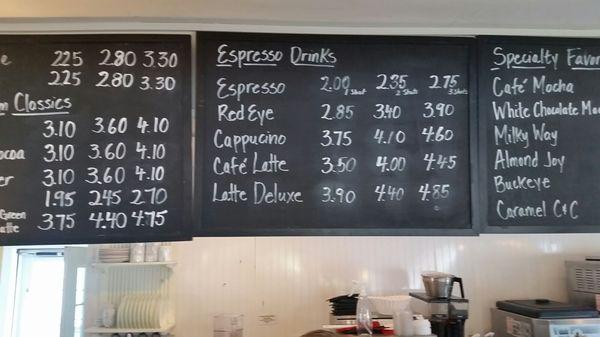 e 2.25 2.80 3.30
2.25 2.80 3.30
m Classics
3.10 3.60 4.10
ocoa 3.10 3.60 4.10
er 3.10 3.60 4.10
1.95 2.45 2.70
Green
atte 3.75 4.40 4.75
Espresso Drinks
Espresso 2.00 1 Shot 2.35 2 Shots 2.75 3 Shots
Red Eye 2.85 3.40 3.90
Cappucino 3.75 4.10 4.60
Café Latte 3.50 4.00 4.45
Latte Deluxe 3.90 4.40 4.85
Specialty Favor
Café Mocha
White Chocolate Mo
Milky Way
Almond Joy
Buckeye
Caramel C&C